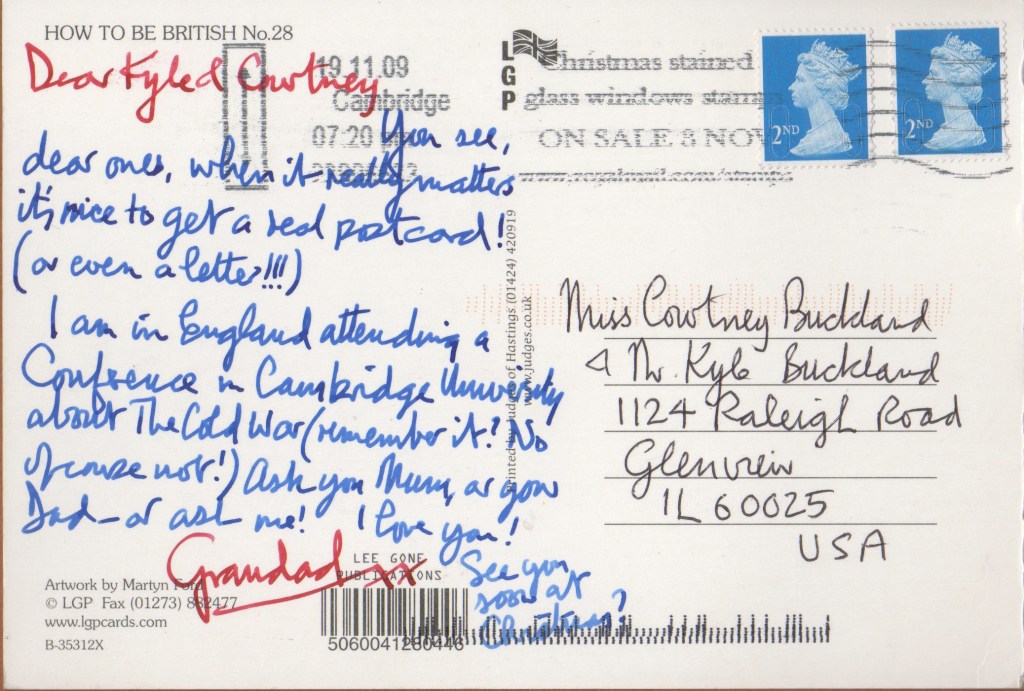 HOW TO BE BRITISH No.28
Dear Kyle & Courtney
You see,
dear ones, when it really matters
it's nice to get a real postcard!
(or even a letter!!!)
I am in England attending a
Conference in Cambridge University
about The Cold War (remember it? No
of course not!) Ask you Mum, or your
Dad – or ask me! I love you!
Grandad xx
See you
soon at
Christmas?
LEE GONE
PUBLICATIONS
Artwork by Martyn Ford
© LGP Fax (01273) 882477
www.lgpcards.com
B-35312X
5060041280446
Printed by Judges of Hastings (01424) 420919
www.judges.co.uk
LGP
19.11.09
Cambridge
07:20
Christmas stained
glass windows stamps
ON SALE 3 NOV
www.royalmail.com/stamps
2ND
2ND
Miss Courtney Buckland
& Mr. Kyle Buckland
1124 Raleigh Road
Glenview
IL 60025
USA